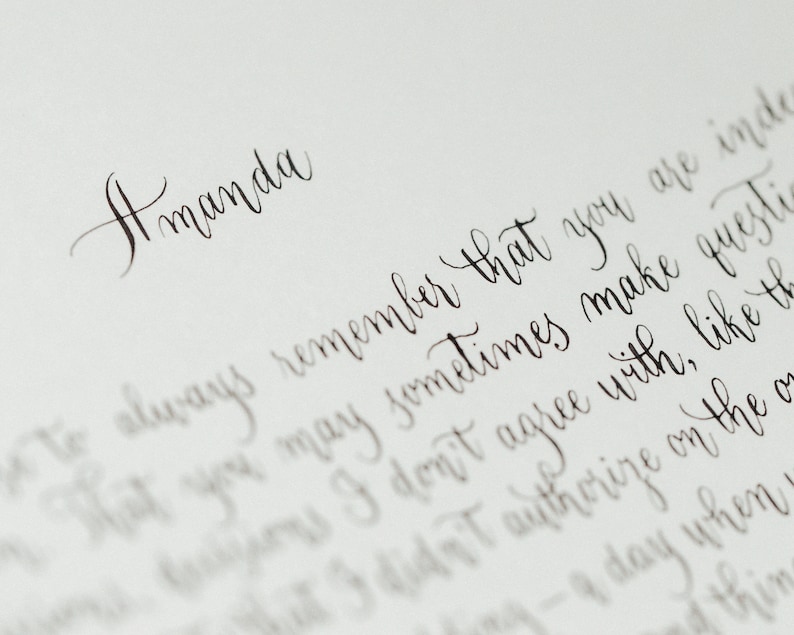 Amanda
to always remember that you are
That you may sometimes make
decisions I don't agree with, like
that I didn't authorize on the
a day when